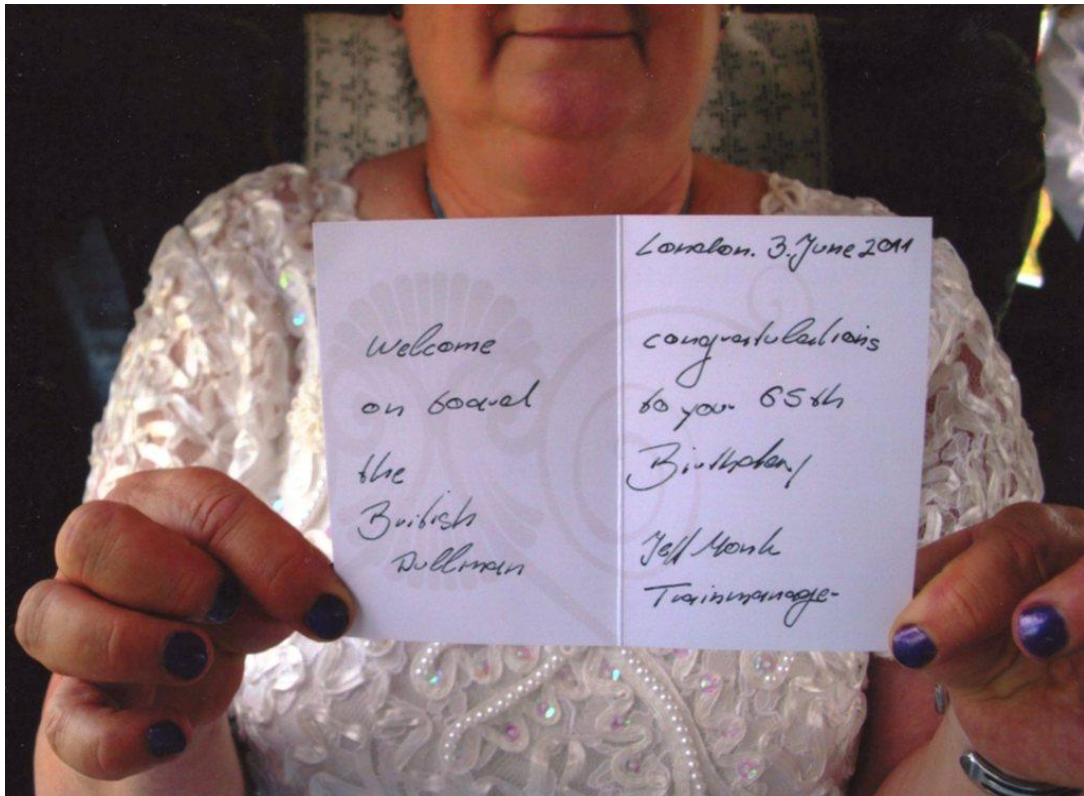 Welcome
on board
the
British
Pullman
London. 3. June 2011
congratulations
to your 65th
Birthday
Jeff Monk
Trainmanager